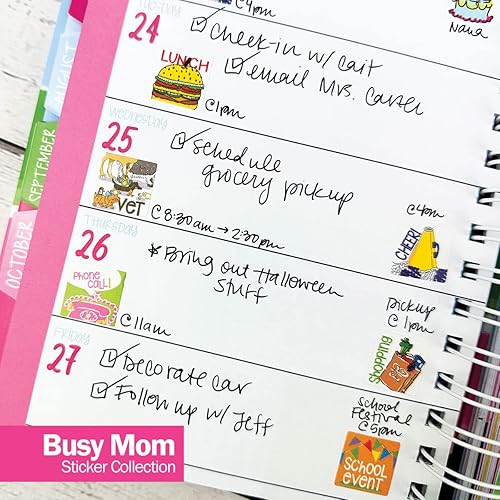 C4pm
Nana
TUESDAY
24
Check-in w/ Cait
email Mrs. Carter
LUNCH
C1pm
WEDNESDAY
25
Schedule
grocery pickup
VET
C8:30am → 2:30pm
C4pm
CHEER!
THURSDAY
26
* Bring out Halloween
stuff
PHONE
CALL!
C11am
pickup
C1pm
SHOPPING
FRIDAY
27
Decorate car
Follow up w/ Jeff
SCHOOL
FESTIVAL
C5pm
SCHOOL
EVENT
AUGUST
SEPTEMBER
OCTOBER
Busy Mom
Sticker Collection